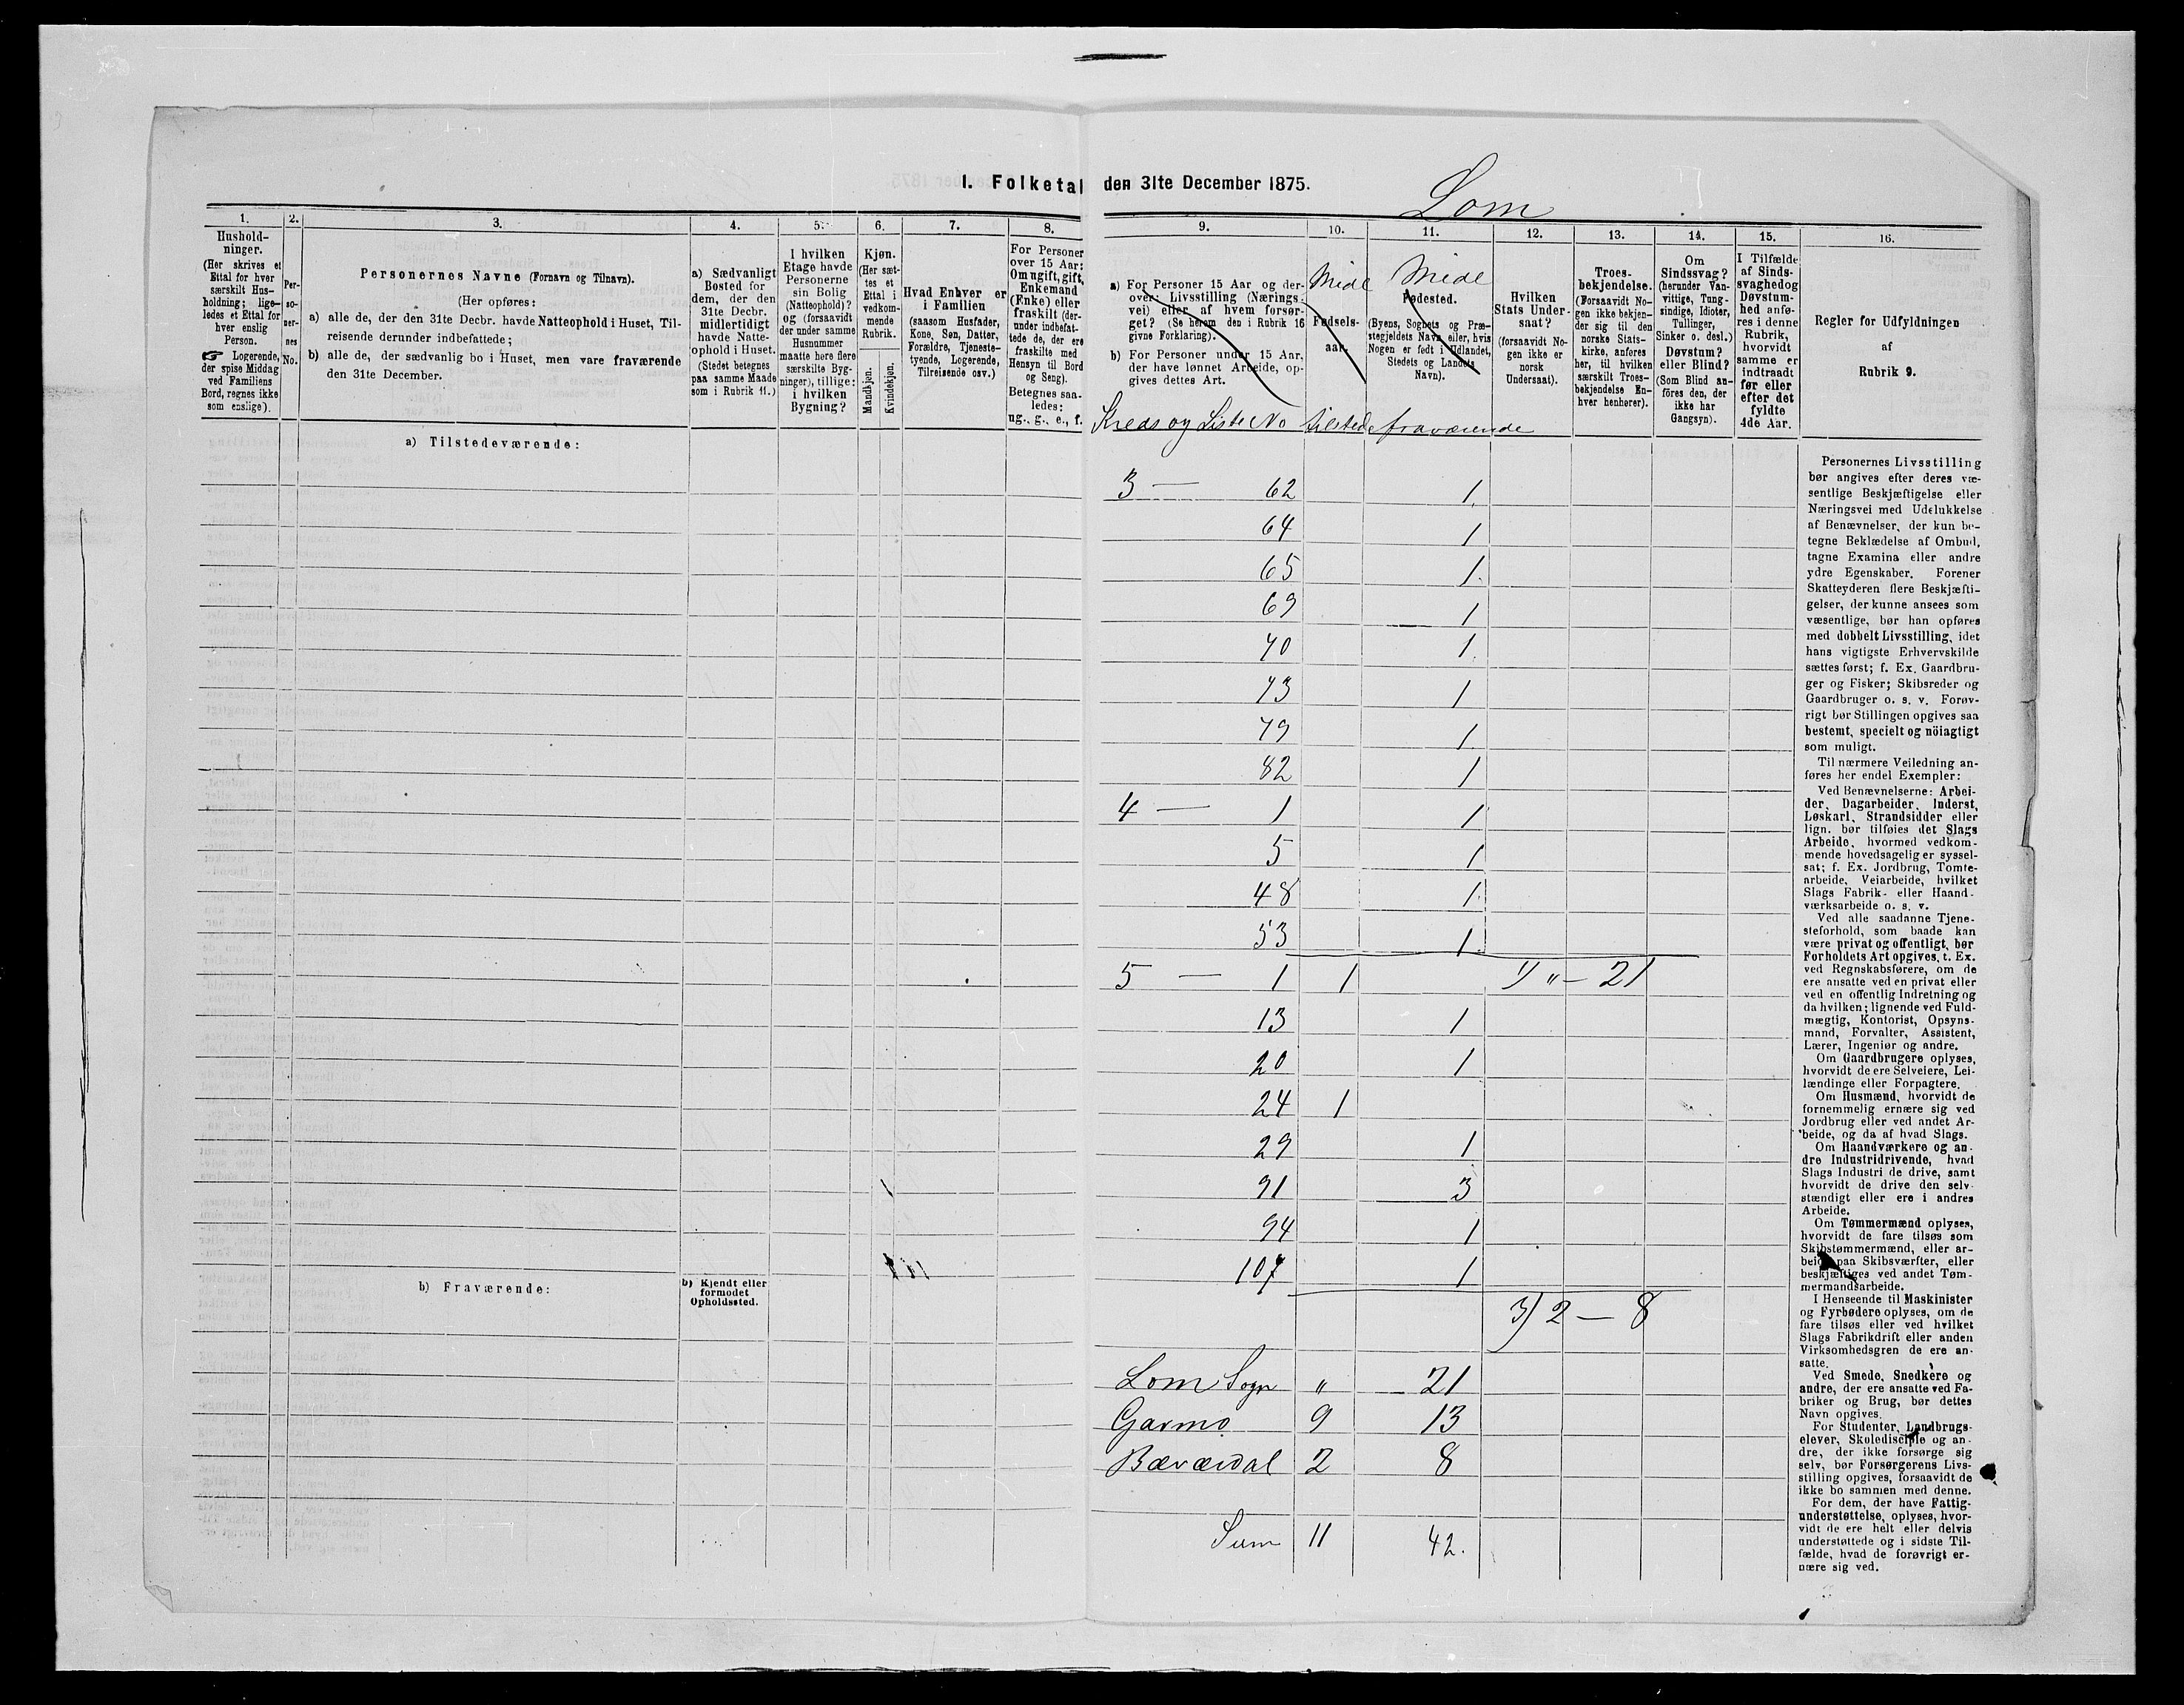 I. Folketal den 31te December 1875.
Lom
1.
Hushold-
ninger.
(Her skrives et
Ettal for hver
særskilt Hus-
holdning; lige-
ledes et Ettal for
hver enslig
Person.
☞ Logerende,
der spise Middag
ved Familiens
Bord, regnes ikke
som enslige).
2.
Per-
so-
ner-
nes
No.
3.
Personernes Navne (Fornavn og Tilnavn).
(Her opføres:
a) alle de, der den 31te Decbr. havde Natteophold i Huset, Til-
reisende derunder indbefattede;
b) alle de, der sædvanlig bo i Huset, men vare fraværende
den 31te December.
4.
a) Sædvanligt
Bosted for
dem, der den
31te Decbr.
midlertidigt
havde Natte-
ophold i Huset.
(Stedet betegnes
paa samme Maade
som i Rubrik 11.)
5.
I hvilken
Etage havde
Personerne
sin Bolig
(Natteophold)?
og (forsaavidt
der under samme
Husnummer
maatte høre flere
særskilte Byg-
ninger), tillige:
i hvilken
Bygning?
6.
Kjøn.
(Her sæt-
tes et
Ettal i
vedkom-
mende
Rubrik.
Mandkjøn.
Kvindekjøn.
7.
Hvad Enhver er
i Familien
(saasom Husfader,
Kone, Søn, Datter,
Forældre, Tjeneste-
tyende, Logerende,
Tilreisende osv.)
8.
For Personer
over 15 Aar:
Om ugift, gift,
Enkemand
(Enke) eller
fraskilt (der-
under indbefat-
tede de, der ere
fraskilte med
Hensyn til Bord
og Seng).
Betegnes saa-
ledes:
ug., g., e., f.
9.
a) For Personer 15 Aar og der-
over: Livsstilling (Nærings-
vei) eller af hvem forsør-
get? (Se herom den i Rubrik 16
givne Forklaring).
b) For Personer under 15 Aar,
der have lønnet Arbeide, op-
gives dettes Art.
10.
Midl
Fødsels-
aar.
11.
Midl
Fødested.
(Byens, Sognets og Præ-
stegjeldets Navn eller, hvis
Nogen er født i Udlandet,
Stedets og Landets
Navn).
12.
Hvilken
Stats Under-
saat?
(forsaavidt No-
gen ikke er
norsk
Undersaat).
13.
Troes-
bekjendelse.
(Forsaavidt No-
gen ikke bekjen-
der sig til den
norske Stats-
kirke, anføres
her, til hvilken
særskilt Troes-
bekjendelse En-
hver henhører).
14.
Om
Sindssvag?
(herunder Van-
vittige, Tung-
sindige, Idioter,
Tullinger,
Sinker o. desl.)
Døvstum?
eller Blind?
(Som Blind an-
føres den, der
ikke har
Gangsyn).
15.
I Tilfælde
af Sinds-
svaghed og
Døvstum-
hed anfø-
res i denne
Rubrik,
hvorvidt
samme er
indtraadt
før eller
efter det
fyldte
4de Aar.
16.
Regler for Udfyldningen
af
Rubrik 9.
Kreds og Liste No tilstede fraværende
a) Tilstedeværende:
3 — 62 1
64 1
65 1
69 1
70 1
73 1
79 1
82 1
4 — 1 1
5 1
48 1
53 1
5 — 1 1 1) „ — 21
13 1
20 1
24 1
29 1
91 3
94 1
107 1
b) Fraværende:
b) Kjendt eller
formodet
Opholdssted.
3) 2 — 8
Lom Sogn „ 21
Garmo 9 13
Bæverdal 2 8
Sum 11 42.
Personernes Livsstilling
bør angives efter deres væ-
sentlige Beskjæftigelse eller
Næringsvei med Udelukkelse
af Benævnelser, der kun be-
tegne Beklædelse af Ombud,
tagne Examina eller andre
ydre Egenskaber. Forener
Skatteyderen flere Beskjæfti-
gelser, der kunne ansees som
væsentlige, bør han opføres
med dobbelt Livsstilling, idet
hans vigtigste Erhvervskilde
sættes først; f. Ex. Gaardbru-
ger og Fisker; Skibsreder og
Gaardbruger o. s. v. Forøv-
rigt bør Stillingen opgives saa
bestemt, specielt og nöiagtigt
som muligt.
Til nærmere Veiledning an-
føres her endel Exempler:
Ved Benævnelserne: Arbei-
der, Dagarbeider, Inderst,
Løskarl, Strandsidder eller
lign. bør tilføies det Slags
Arbeide, hvormed vedkom-
mende hovedsagelig er syssel-
sat; f. Ex. Jordbrug, Tomte-
arbeide, Veiarbeide, hvilket
Slags Fabrik- eller Haand-
værksarbeide o. s. v.
Ved alle saadanne Tjene-
steforhold, som baade kan
være privat og offentligt, bør
Forholdets Art opgives, t. Ex.
ved Regnskabsførere, om de
ere ansatte ved en privat eller
ved en offentlig Indretning og
da hvilken; lignende ved Fuld-
mægtig, Kontorist, Opsyns-
mand, Forvalter, Assistent,
Lærer, Ingeniør og andre.
Om Gaardbrugere oplyses,
hvorvidt de ere Selveiere, Lei-
lændinge eller Forpagtere.
Om Husmænd, hvorvidt de
fornemmelig ernære sig ved
Jordbrug eller ved andet Ar-
beide, og da af hvad Slags.
Om Haandværkere og an-
dre Industridrivende, hvad
Slags Industri de drive, samt
hvorvidt de drive den selv-
stændigt eller ere i andres
Arbeide.
Om Tømmermænd oplyses,
hvorvidt de fare tilsøs som
Skibstømmermænd, eller ar-
beide paa Skibsværfter, eller
beskjæftiges ved andet Tøm-
mermandsarbeide.
I Henseende til Maskinister
og Fyrbødere oplyses, om de
fare tilsøs eller ved hvilket
Slags Fabrikdrift eller anden
Virksomhedsgren de ere an-
satte.
Ved Smede, Snedkere og
andre, der ere ansatte ved Fa-
briker og Brug, bør dettes
Navn opgives.
For Studenter, Landbrugs-
elever, Skoledisciple og an-
dre, der ikke forsørge sig
selv, bør Forsørgerens Livs-
stilling opgives, forsaavidt de
ikke bo sammen med denne.
For dem, der have Fattig-
understøttelse, oplyses, hvor-
vidt de ere helt eller delvis
understøttede og i sidste Til-
fælde, hvad de forøvrigt er-
nære sig ved.